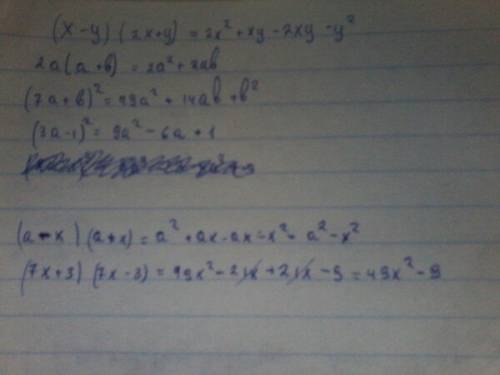 (x-y)(2x+y) = 2x²+xy-2xy-y²
2a(a+b) = 2a²+2ab
(7a+b)² = 49a² + 14ab + b²
(3a-1)² = 9a² - 6a + 1
(a-x)(a+x) = a² + ax - ax - x² = a² - x²
(7x+3)(7x-3) = 49x² - 21x + 21x - 9 = 49x² - 9